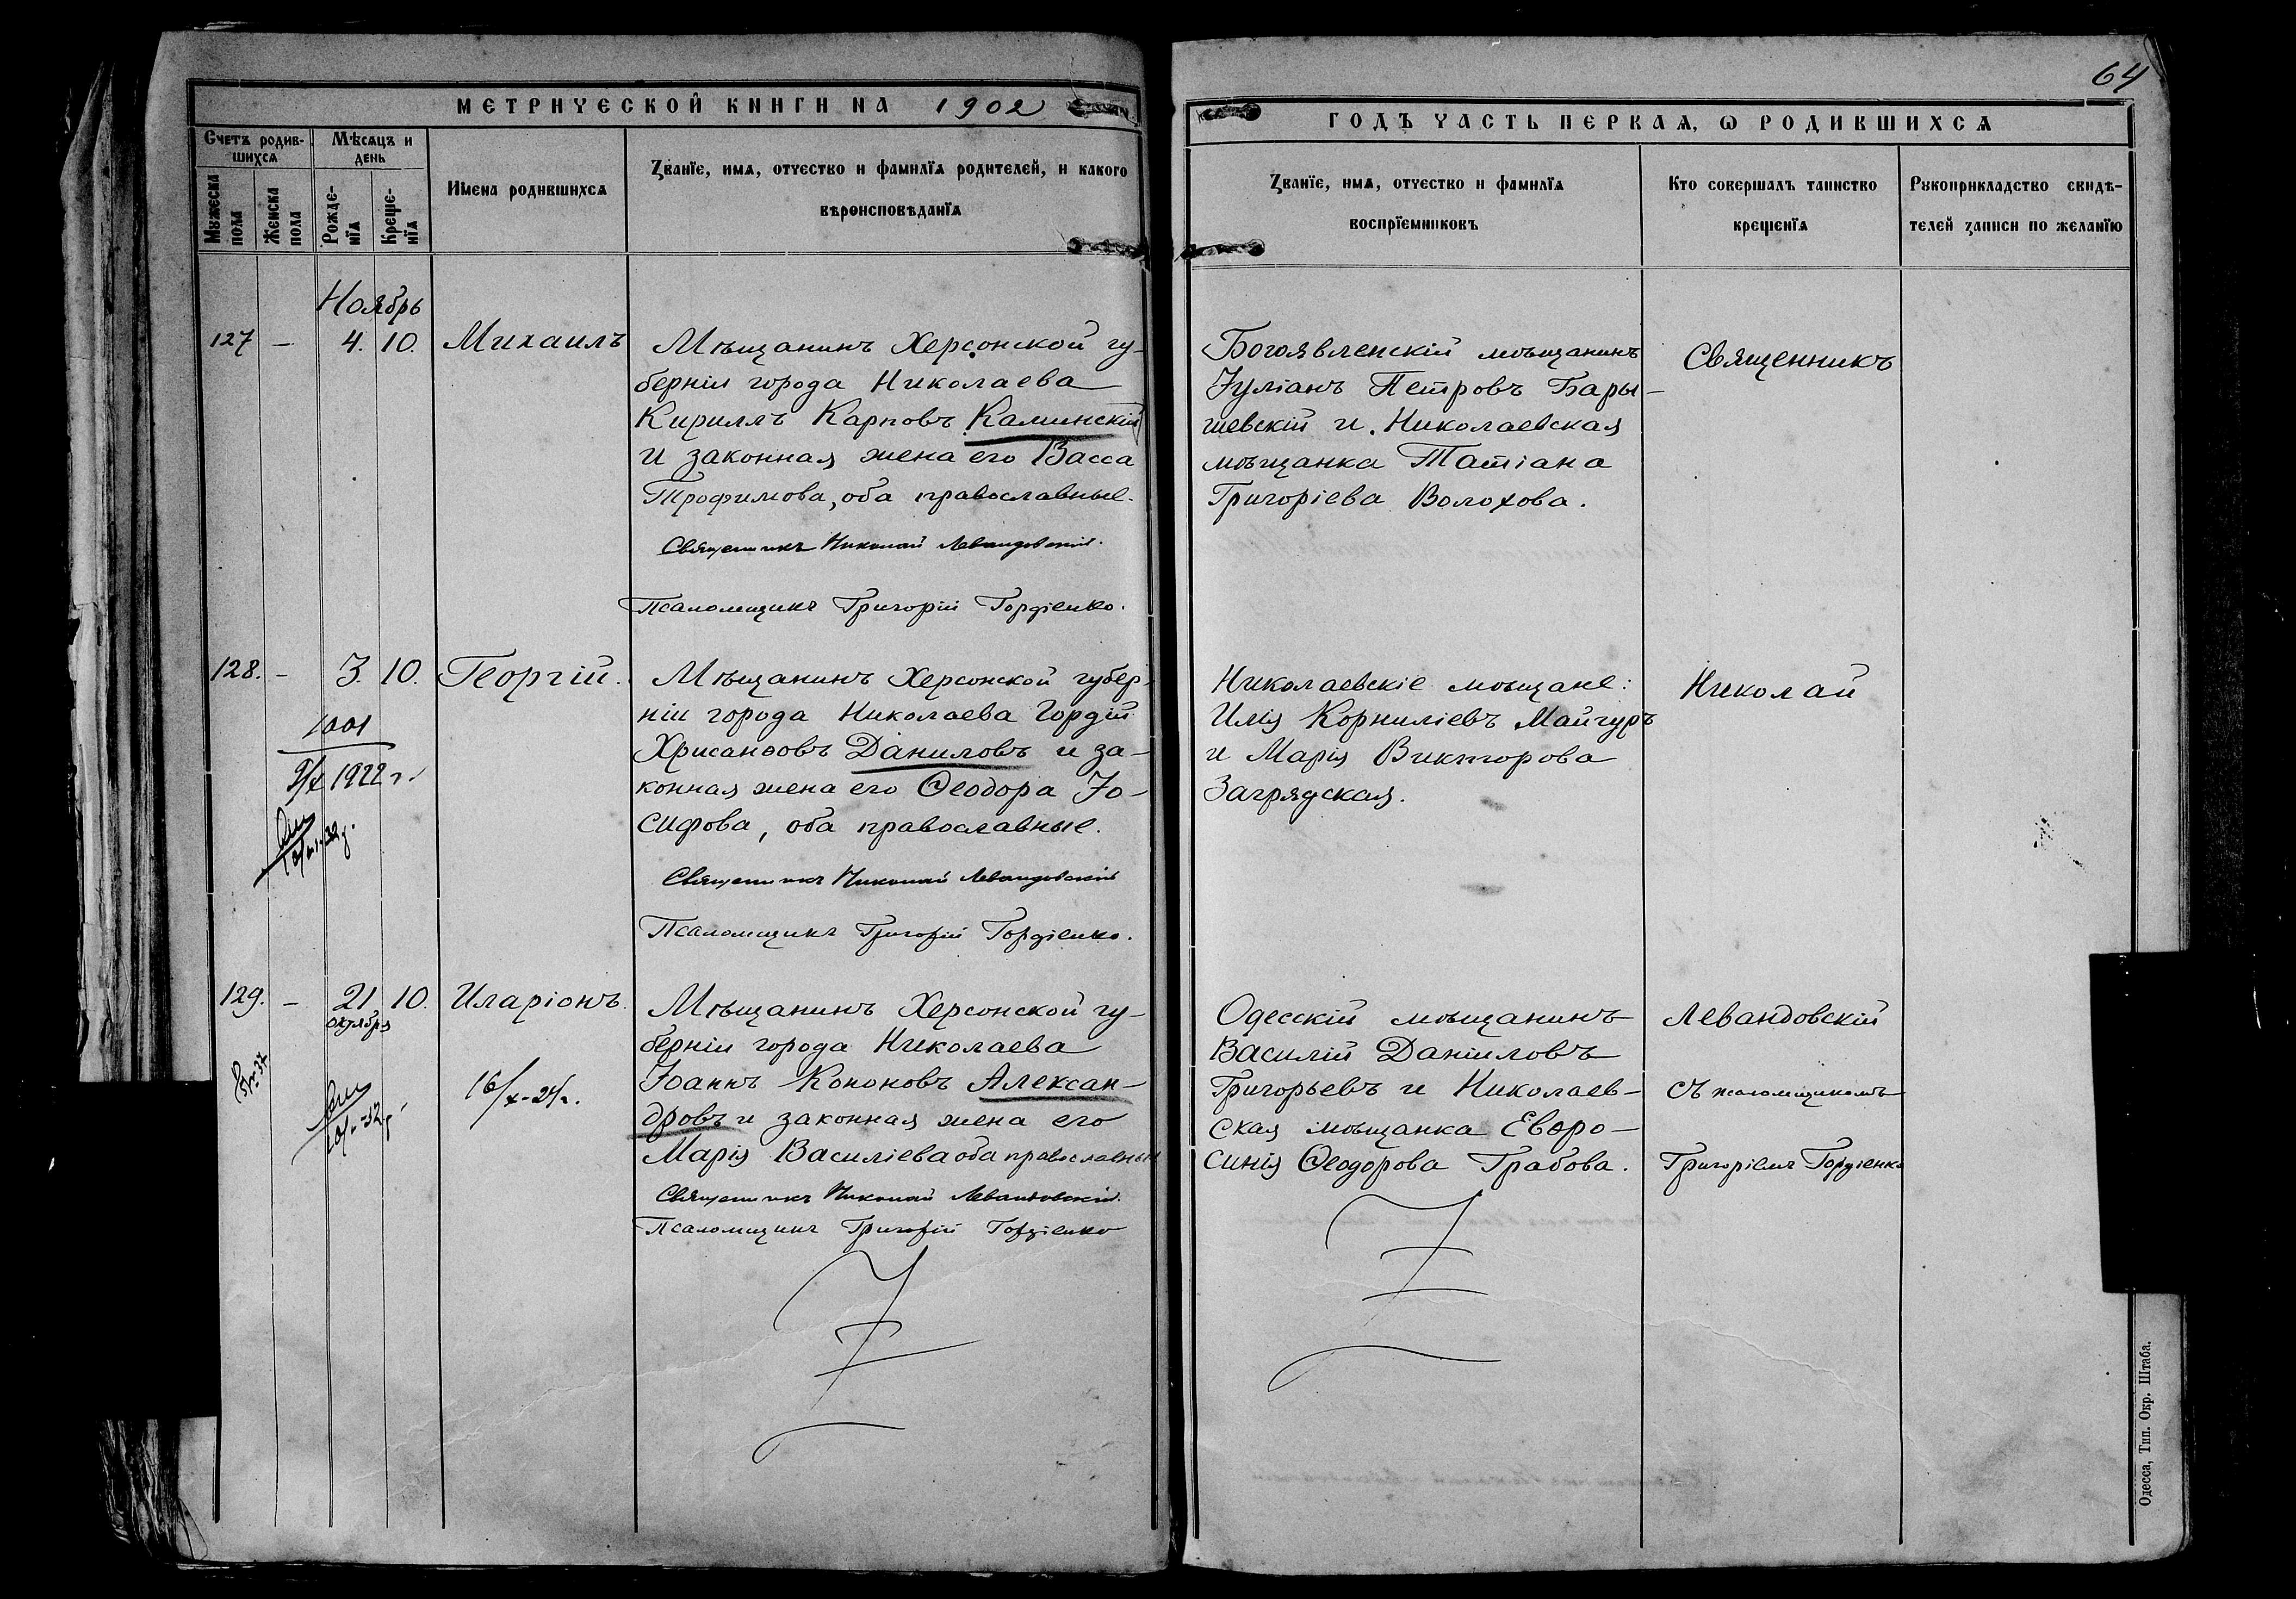 64
МЕТРИЧЕСКОЙ КНИГИ НА 1902
ГОДЪ ЧАСТЬ ПЕРВАЯ, Ѡ РОДИВШИХСЯ
Счетъ родив-
шихся
Мѣсяцъ и
день
Мужеска
пола
Женска
пола
Рожде-
нїя
Креще-
нїя
Имена родившихся
Званїе, имя, отчество и фамилїя родителей, и какого
вѣроисповѣданїя
Званїе, имя, отчество и фамилїя
воспрїемниковъ
Кто совершалъ таинство
крещенїя
Рукоприкладство свидѣ-
телей записи по желанїю
Ноябрь
127 – 4. 10. Михаилъ
Мѣщанинъ Херсонской гу-
берніи города Николаева
Кириллъ Карповъ Каминскій
и законная жена его Васса
Трофимова, оба православные.
Священникъ Николай Левандовскій.
Псаломщикъ Григорій Гордіенко.
Богоявленскій мѣщанинъ
Іуліанъ Петровъ Бары-
шевскій и Николаевская
мѣщанка Татіана
Григоріева Волохова.
Священникъ
128. – 3. 10. Георгій.
1001
9/X 1922 г.
Мѣщанинъ Херсонской губер-
ніи города Николаева Гордій
Хрисанѳовъ Даниловъ и за-
конная жена его Ѳеодора Іо-
сифова, оба православные.
Священникъ Николай Левандовскій
Псаломщикъ Григорій Гордіенко.
Николаевскіе мѣщане:
Илія Корниліевъ Майгуръ
и Марія Викторова
Загрядская.
Николай
129. – 21 10. Иларіонъ.
октября
16/X-24г.
Мѣщанинъ Херсонской гу-
берніи города Николаева
Іоаннъ Кононовъ Алексан-
дровъ и законная жена его
Марія Василіева оба православные
Священникъ Николай Левандовскій.
Псаломщикъ Григорій Гордіенко
Одесскій мѣщанинъ
Василій Даніиловъ
Григорьевъ и Николаев-
ская мѣщанка Евѳро-
синія Ѳеодорова Грабова.
Левандовскій
съ псаломщикомъ
Григоріемъ Гордіенко
Одесса, Тип. Окр. Штаба.